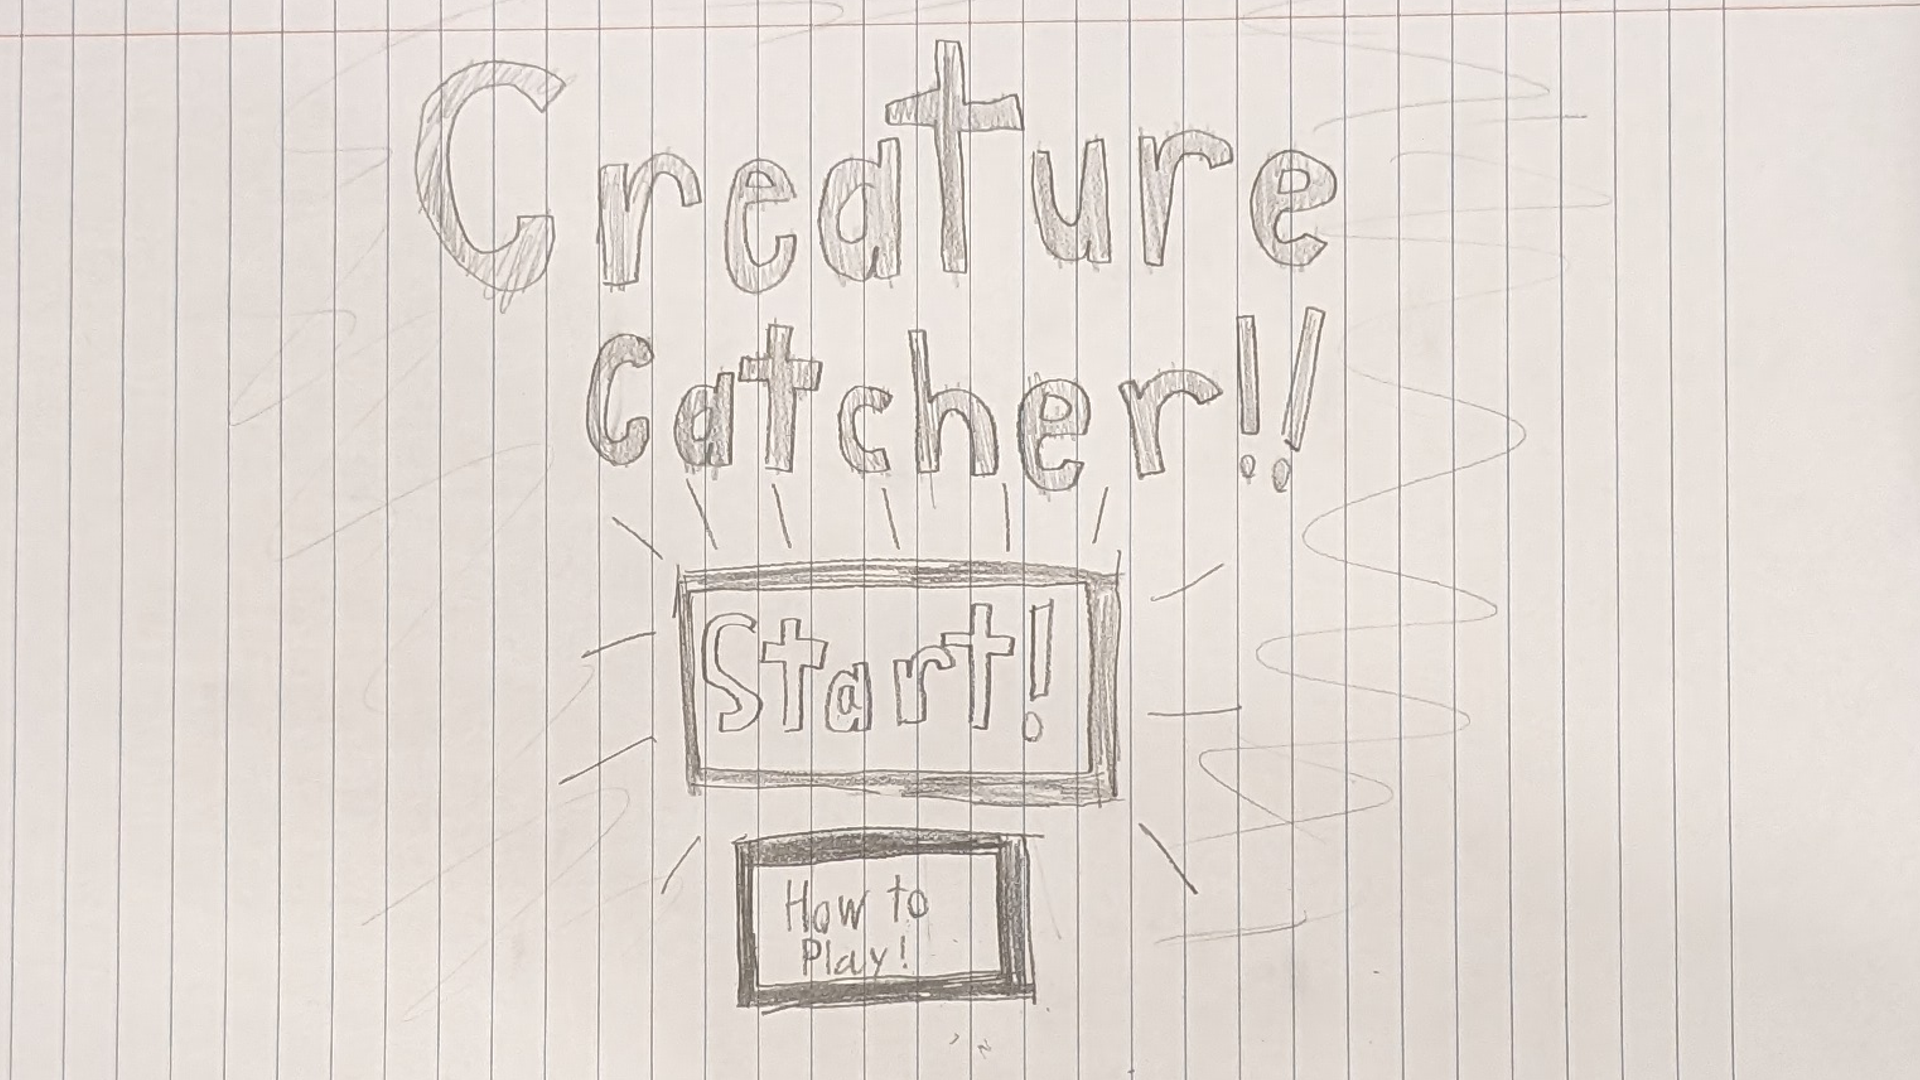 Creature
Catcher!!
Start!
How to
Play!